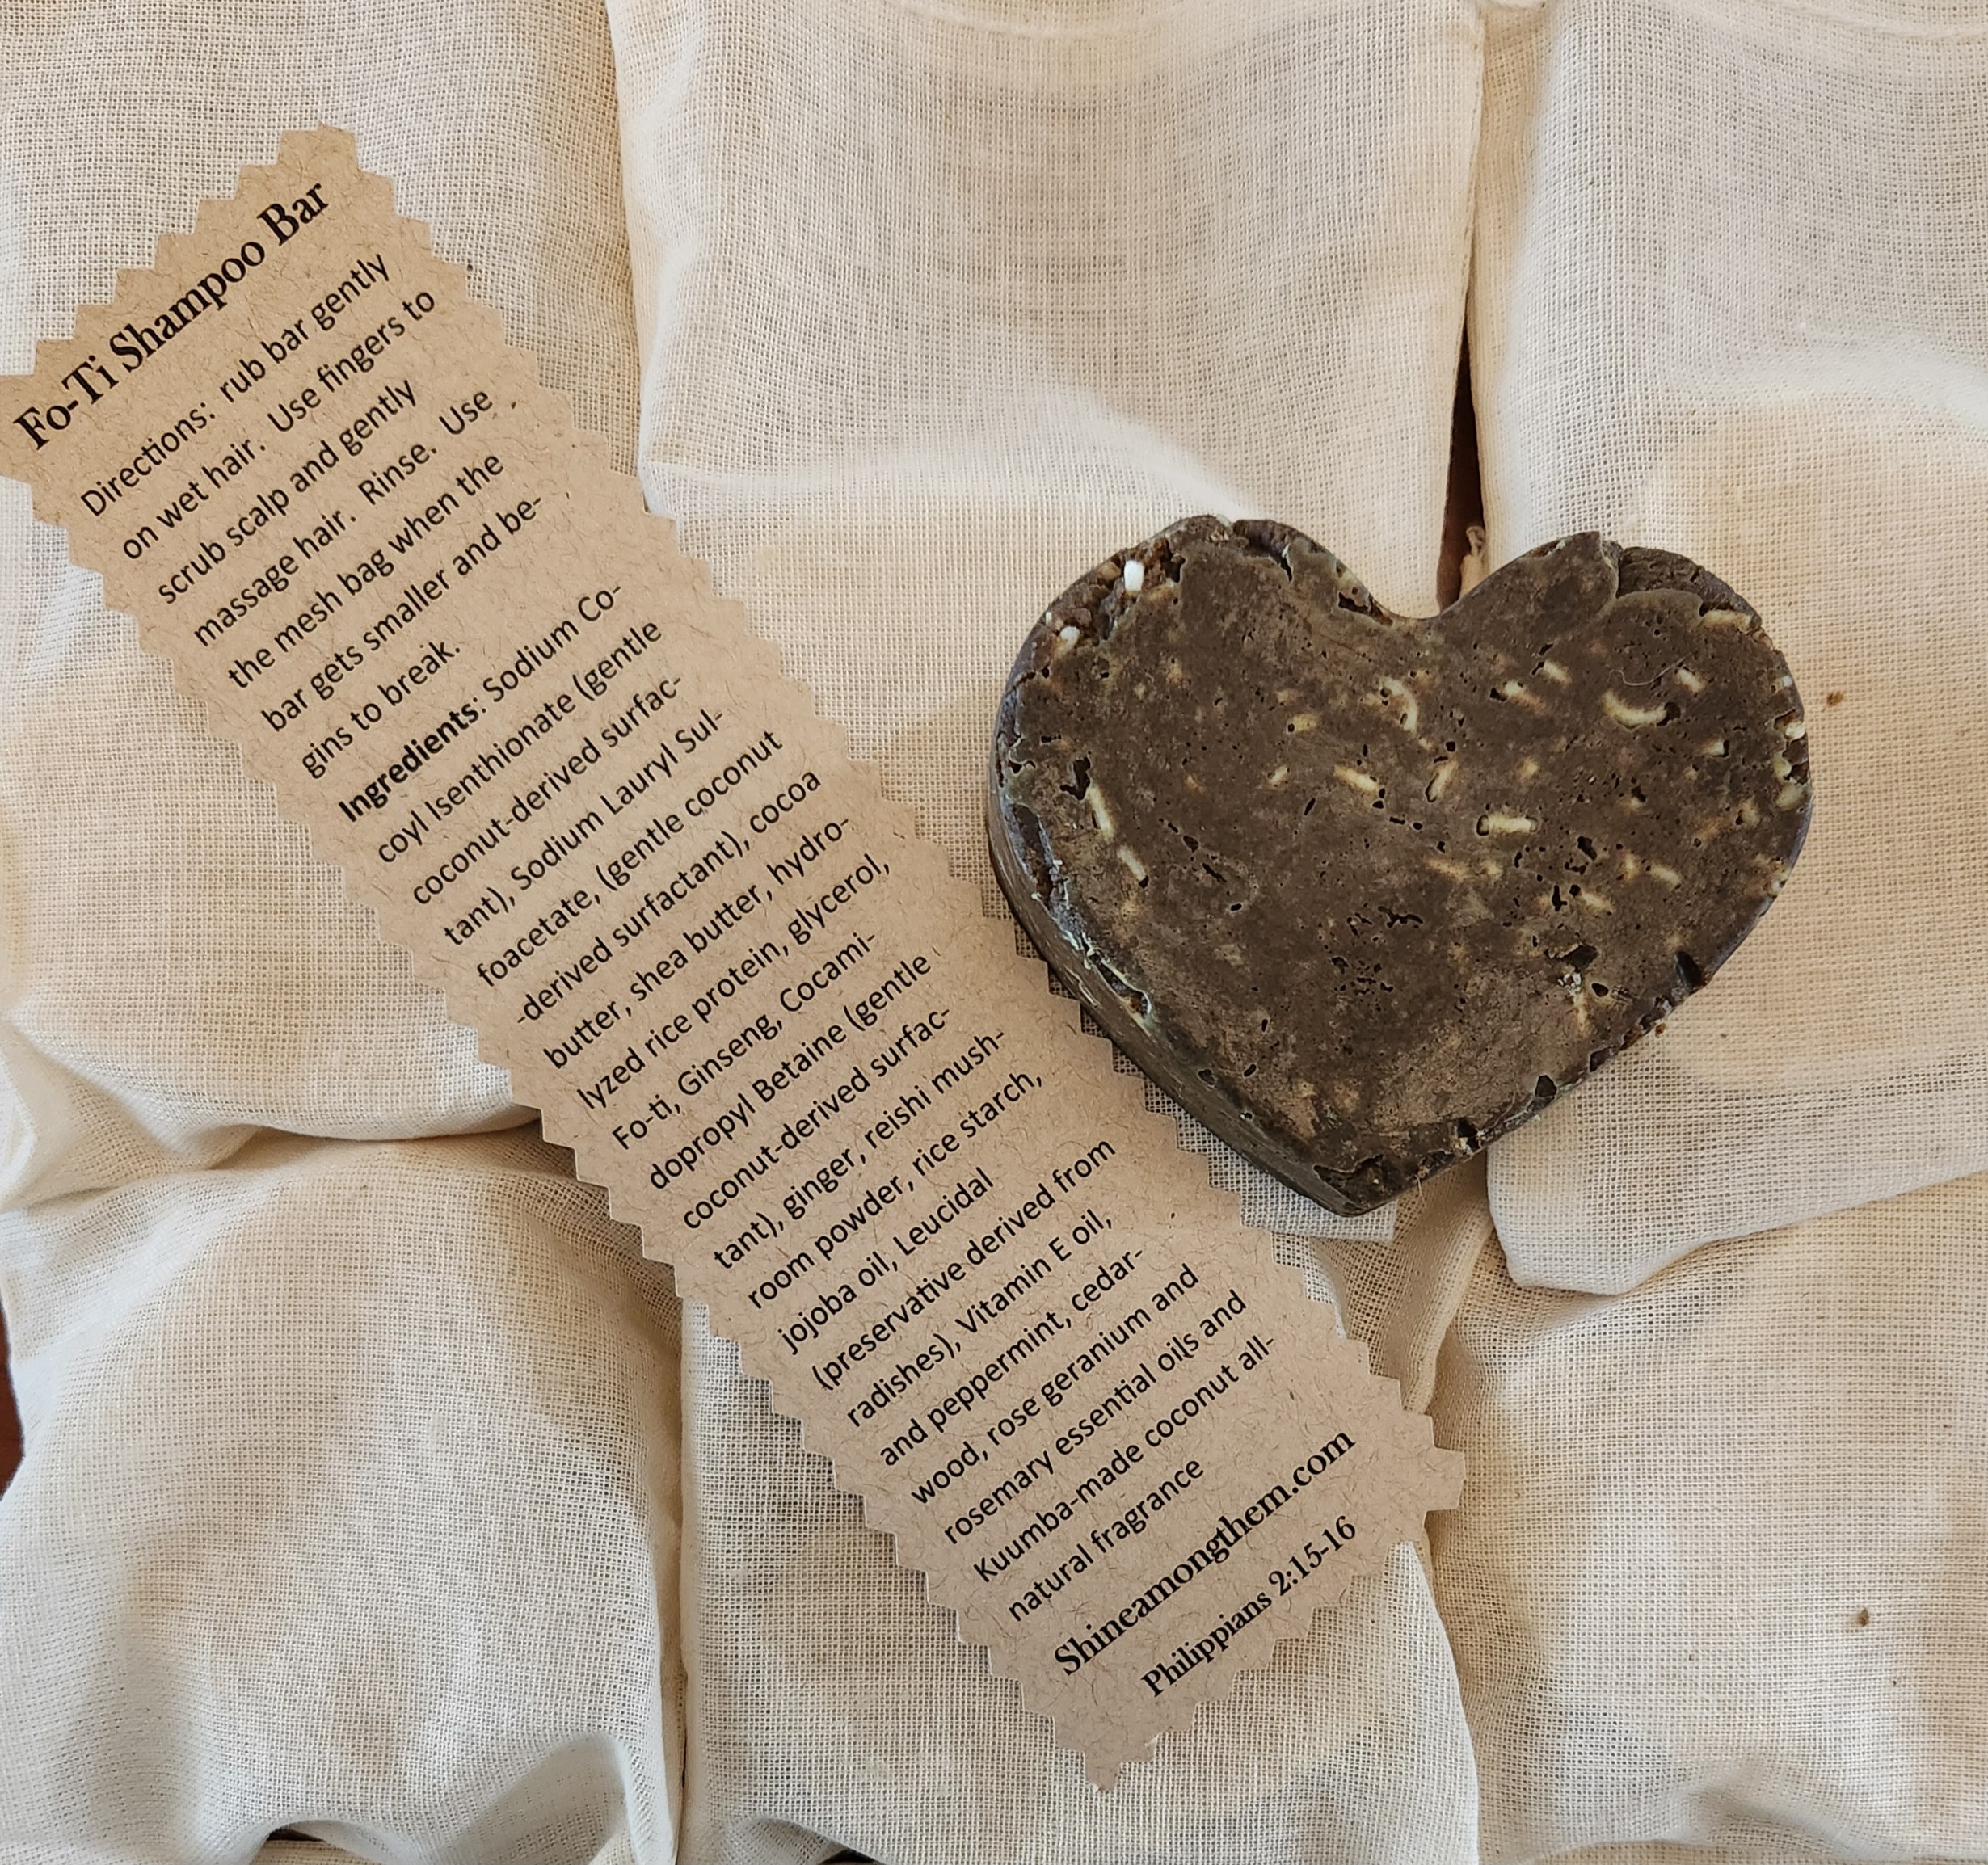 Fo-Ti Shampoo Bar
Directions: rub bar gently
on wet hair. Use fingers to
scrub scalp and gently
massage hair. Rinse. Use
the mesh bag when the
bar gets smaller and be-
gins to break.
Ingredients: Sodium Co-
coyl Isenthionate (gentle
coconut-derived surfac-
tant), Sodium Lauryl Sul-
foacetate, (gentle coconut
-derived surfactant), cocoa
butter, shea butter, hydro-
lyzed rice protein, glycerol,
Fo-ti, Ginseng, Cocami-
dopropyl Betaine (gentle
coconut-derived surfac-
tant), ginger, reishi mush-
room powder, rice starch,
jojoba oil, Leucidal
(preservative derived from
radishes), Vitamin E oil,
and peppermint, cedar-
wood, rose geranium and
rosemary essential oils and
Kuumba-made coconut all-
natural fragrance
Shineamongthem.com
Philippians 2:15-16